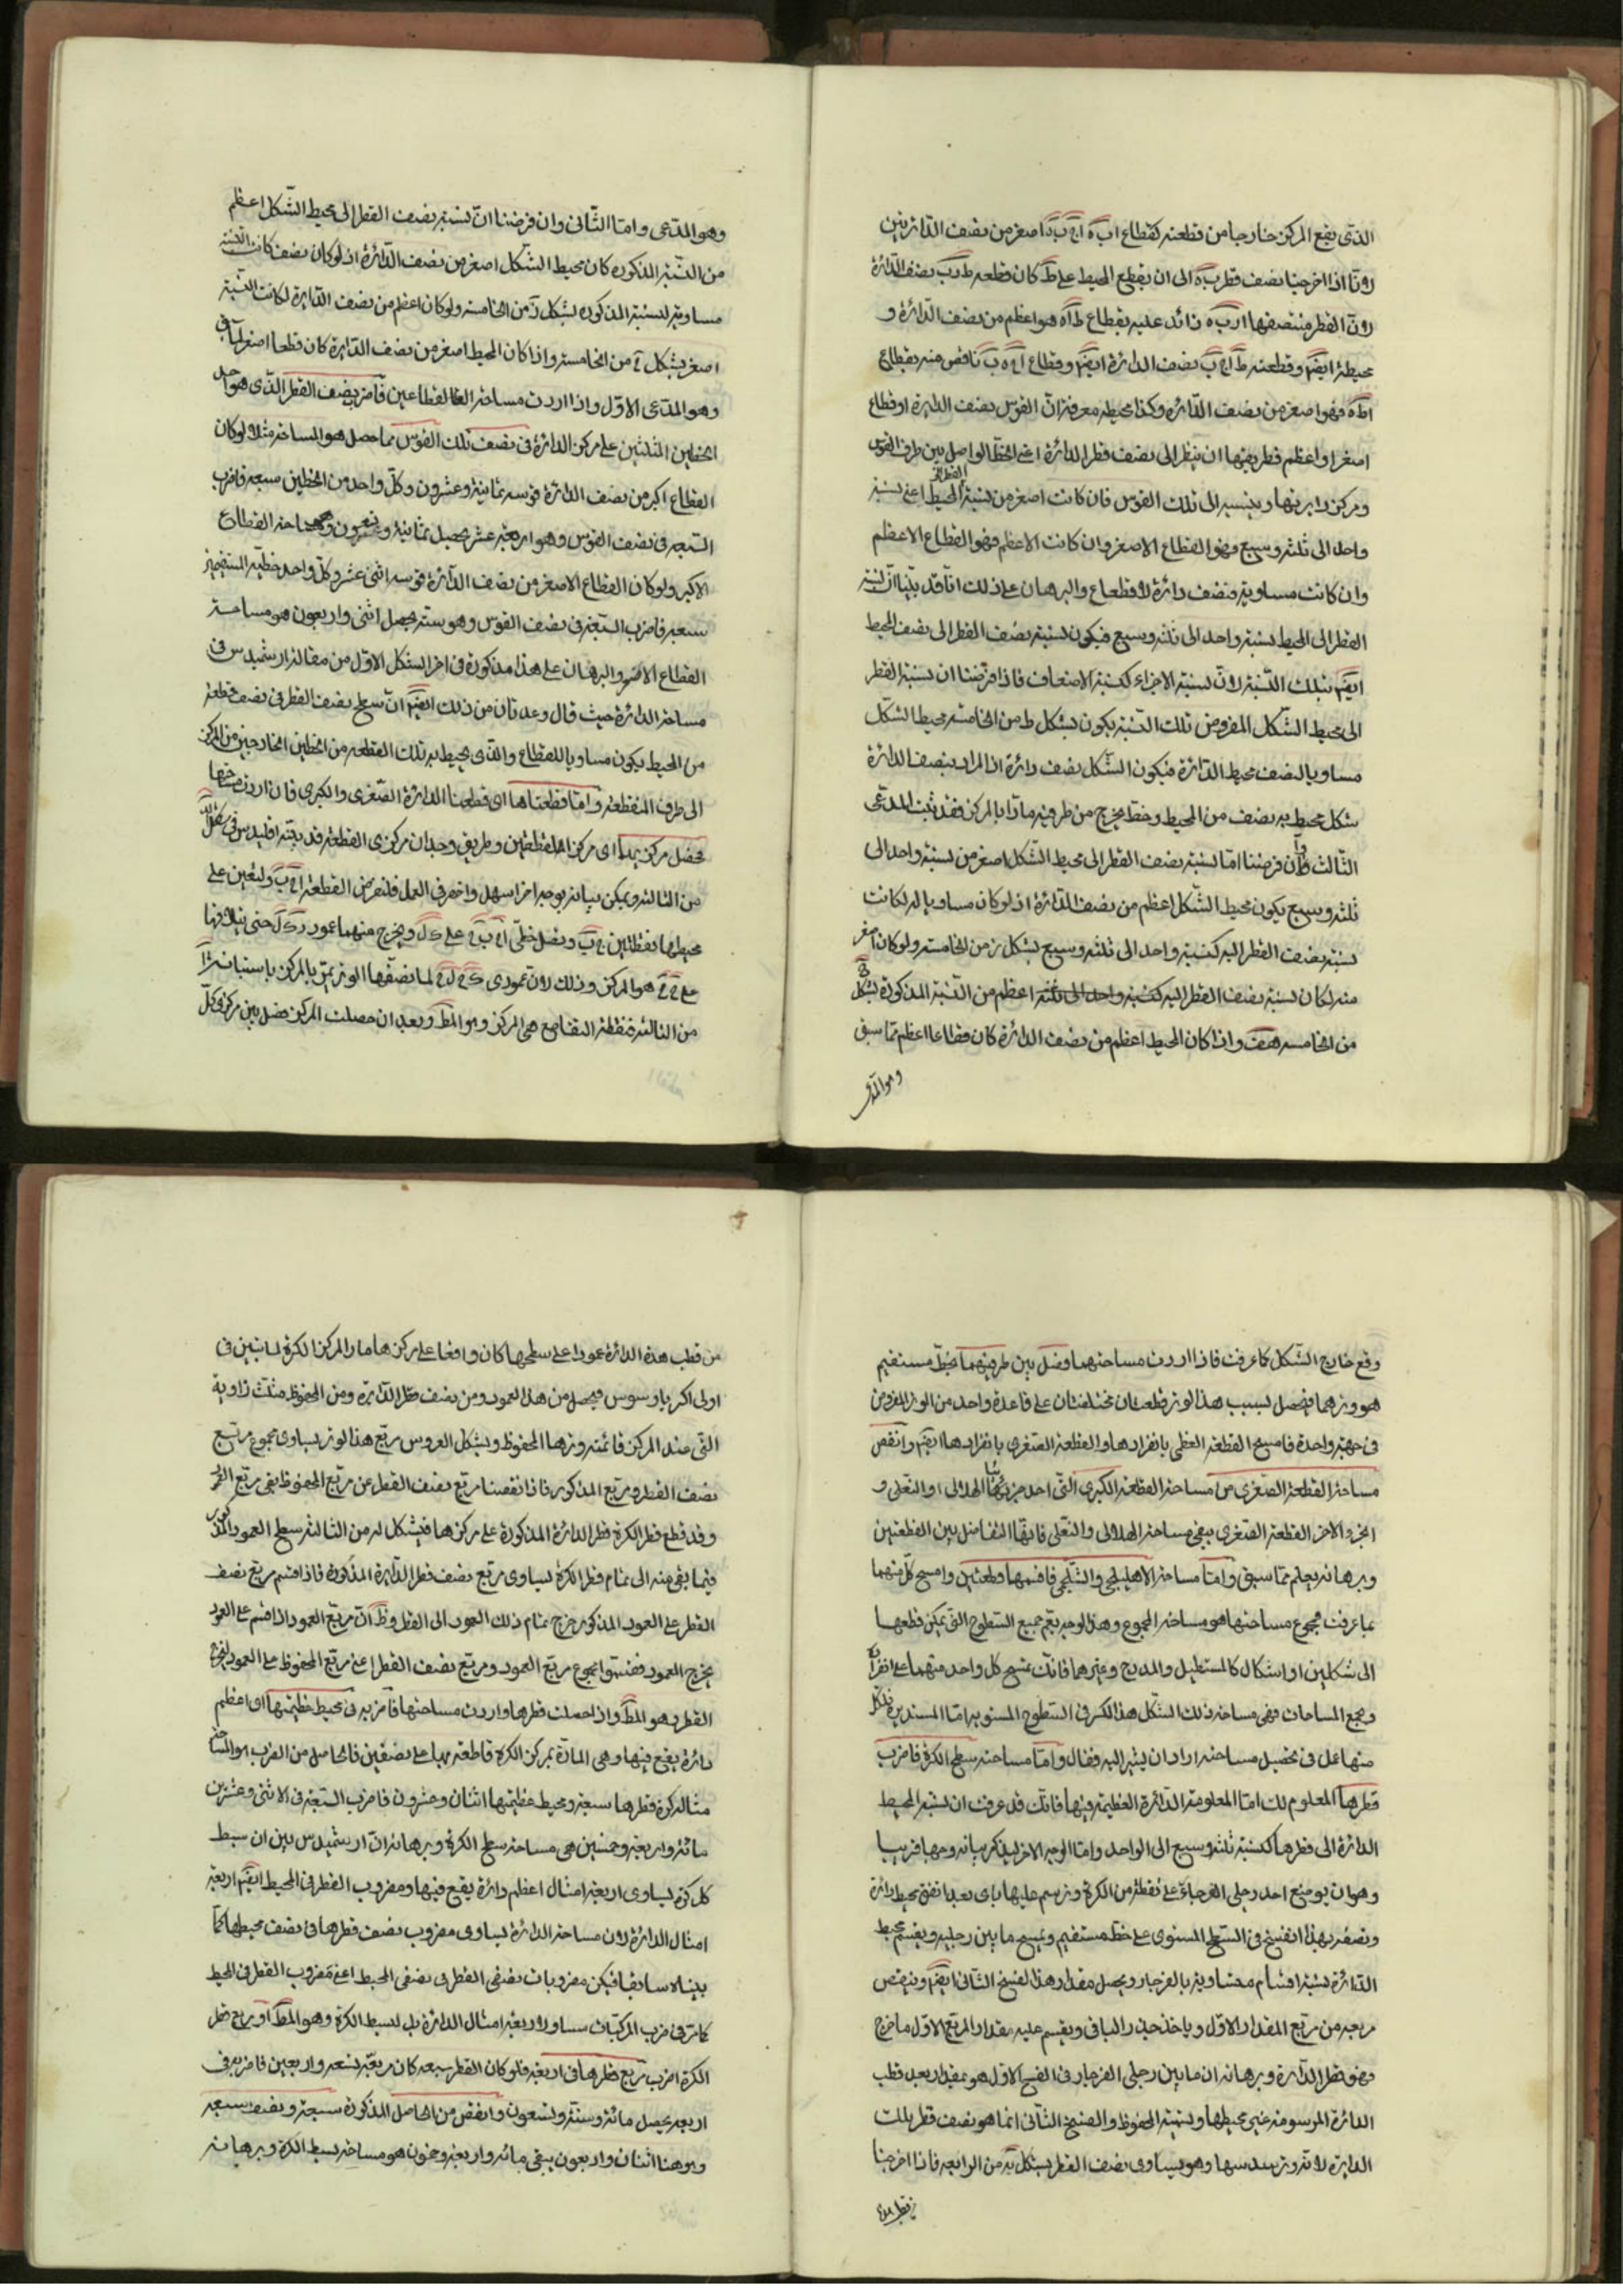 الذى يقع المركز خارجا من قطعته كقطاع ا ب ه ا ج ب ه اصغر من نصف الدائرتين
لانا اذا اخرجنا نصف قطر ب ه الى ان يقطع المحيط على ط كان قطعه ط د ب نصف الدائرة
لان القطر منتصفها ا د ب ه زائد عليه بقطاع ط ا ه هو اعظم من نصف الدائرة و
محيطه ايضا وقطعته ط ا ج ب نصف الدائرة ايضا وقطاع ا ج ه ب ناقص منه بقطاع
ا ط ه فهو اصغر من نصف الدائرة وكذا محيطه معرفة ان القوس نصف الدائرة او قطاع
اصغر او اعظم فطريقها ان ينظر الى نصف قطر الدائرة اعنى الخط الواصل بين طرف القوس
ومركز دايرتها وينسبه الى تلك القوس فان كانت اصغر من نسبة القطر الى المحيط اعنى نسبة
واحد الى ثلثه وسبع فهو القطاع الاصغر وان كانت الاعظم فهو القطاع الاعظم
وان كانت مساوية فنصف دائرة لا قطاع والبرهان على ذلك انا قد بينا ان نسبة
القطر الى المحيط نسبة واحد الى ثلثه وسبع فيكون نسبة نصف القطر الى نصف المحيط
ايضا بتلك النسبة لان نسبة الاجزاء كنسبة الاضعاف فاذا فرضنا ان نسبة القطر
الى محيط الشكل المفروض تلك النسبة يكون بشكل ط من الخامسة محيط الشكل
مساويا لنصف محيط الدائرة فيكون الشكل نصف دائرة اذ المراد بنصف الدائرة
شكل محيط به نصف من المحيط وخط يخرج من طرفيه مارا بالمركز فقد ثبت المدعى
الثالث وان فرضنا اما نسبة نصف القطر الى محيط الشكل اصغر من نسبة واحد الى
ثلثه وسبع يكون محيط الشكل اعظم من نصف الدائرة اذ لو كان مساويا له لكانت
نسبة نصف القطر اليه كنسبة واحد الى ثلثه وسبع بشكل ز من الخامسة ولو كان اصغر
منه لكان نسبة نصف القطر اليه اعظم من النسبة المذكورة بشكل
من الخامسة هف واذا كان المحيط اعظم من نصف الدائرة كان قطاعا اعظم مما سبق
وهو المدعى
وهو المدعى واما الثانى وان فرضنا ان نسبة نصف القطر الى محيط الشكل اعظم
من النسبة المذكورة كان محيط الشكل اصغر من نصف الدائرة اذ لو كان نصف كانت النسبة
مساوية لنسبة المذكورة بشكل ز من الخامسة ولو كان اعظم من نصف الدائرة لكانت النسبة
اصغر بشكل ح من الخامسة واذا كان المحيط اصغر من نصف الدائرة كان قطعا اصغر لما
وهو المدعى الاول واذا اردت مساحة القطاعين فاضرب نصف القطر الذى هو احد
الخطين على مركز الدائرة فى نصف تلك القوس فما حصل هو المساحة مثلا لو كان
القطاع اكبر من نصف الدائرة قوسه ثمانية وعشرون وكل واحد من الخطين سبعة فاضرب
السبعة فى نصف القوس وهو اربعة عشر يحصل ثمانية وتسعون وهو مساحة القطاع
الاكبر ولو كان القطاع الاصغر من نصف الدائرة قوسه اثنى عشر وكل واحد خطيه المستقيمين
سبعة فاضرب السبعة فى نصف القوس وهو ستة يحصل اثنى واربعون هو مساحة
القطاع الاصغر والبرهان على هذا مذكورة فى اخر الشكل الاول من مقالة ارشميدس فى
مساحة الدائرة حيث قال وعد بان من ذلك ايضا ان سطح نصف القطر فى نصف قطعة
من المحيط يكون مساويا للقطاع والذى يحيط به تلك القطعة من الخطين الخارجين من المركز
الى طرف القطعة واما قطعتاها اى قطعتا الدائرة الصغرى والكبرى فان اردت مساحتها
فحصل مركزيها اى مركز القطعتين وطريق وجدان مركزى القطعة قد بينه اقليدس فى شكل
من الثالثة ويمكن بيانه بوجه اخر اسهل واخصر فى العمل فلنفرض القطعة ا ج ب ولنعين على
محيطها نقطتين ج ب ونصل خطى ا ج ب ج على ك ل ويخرج منهما عمود حتى يتلاقيا
على ع هو المركز وذلك لان عمودى ك ع ل ع لما نصفا الوتر يمر بالمركز باستبانة
من الثالثة فنقطة التقاطع هى المركز وهو المط وبعد ان حصلت المركز فصل بين مركز فى كل
وقع خارج الشكل كما عرفت فاذا اردت مساحتهما وصل بين طرفيهما بخط مستقيم
هو وترهما فيحصل بسبب هذا الوتر قطعتان مختلفتان على قاعدة واحد من الوتر المفروض
فى جهة واحدة فامسح القطعة العظمى بانفرادها والقطعة الصغرى بانفرادها ايضا وانقص
مساحة القطعة الصغرى من مساحة القطعة الكبرى التى احد جزئيها الهلالى او النعلى و
الجزء الاخر القطعة الصغرى يبقى مساحة الهلالى والنعلى فانها التفاضل بين القطعتين
وبرهانه يعلم مما سبق واما مساحة الاهليلجى والشلجمى فاقسمها قطعتين وامسح كل منهما
بما عرفت مجموع مساحتها هو مساحة المجموع وهذا الوجه يعم جميع السطوح التى يمكن قطعها
الى شكلين او اشكال كالمستطيل والمدرج وغيرهما فانك تمسح كل واحد منهما على انفراد
وتجمع المساحات فهى مساحة ذلك الشكل هذا الكر فى السطوح المستوية اما المستديرة فلكل
منها عمل فى تحصيل مساحته اراد ان يشير اليه فقال واما مساحته سطح الكرة فاضرب
قطرها المعلوم لك اما المعلومة الدائرة العظيمة فيها فانك قد عرفت ان نسبة المحيط
الدائرة الى قطرها كنسبة ثلثة وسبع الى الواحد واما الوجه الاخر ليذكر بيانه وجها قريبا
وهو ان يوضع احد رجلى الفرجار على نقطة من الكرة وترسم عليها باى بعد اتفق محيط دائرة
ونضع بهذا الفتح فى السطح المستوى على خط مستقيم ويمسح ما بين رجليه ويقسم محيط
الدائرة بستة اقسام متساوية بالفرجار ويحصل مقدار هذا الفتح الثانى ايضا وينقص
مربعه من مربع المقدار الاول وياخذ جذر الباقى ويقسم عليه مقدار المربع الاول ما خرج
فهو قطر الدائرة وبرهانه ان ما بين رجلى الفرجار فى الفتح الاول هو بمقدار بعد قطب
الدائرة المرسومة عن محيطها ونسميه المحفوظ والفتح الثانى انما هو نصف قطر تلك
الدائرة لانه وتر سدسها وهو يساوى نصف القطر بشكل يه من الرابعة فاذا اخرجنا
من قطب هذه
من قطب هذه الدائرة عمودا على سطحها كان واقعا على مركزها مارا لمركز الكرة لما تبين فى
اولى اكر ثاوذوسيوس فيحصل من هذا العمود ومن نصف قطر الدائرة ومن المحفوظ مثلث زاوية
التى عند المركز قائمة وترها المحفوظ وبشكل العروس مربع هذا الوتر يساوى مجموع مربع
نصف القطر ومربع المذكور فاذا نقصنا مربع نصف القطر عن مربع المحفوظ بقى مربع العمود
وقد قطع قطر الكرة قطر الدائرة المذكورة على مركزها فبشكل له من الثالثة سطح العمود المذكور
فيما بقى منه الى تمام قطر الكرة يساوى مربع نصف قطر الدائرة المذكورة فاذا قسم مربع نصف
القطر على العمود المذكور خرج تمام ذلك العمود الى القطر وظ ان مربع العمود اذا قسم على العمود
يخرج العمود فقسموا مجموع مربع العمود ومربع نصف القطر اعنى مربع المحفوظ على العمود ليخرج
القطر وهو المط واذا حصلت قطرها واردت مساحتها فاضربه فى محيط عظيمتها اى اعظم
دائرة يقع فيها وهى المارة بمركز الكرة قاطعة لها على نصفين فالحاصل من الضرب هو المساحة
مثاله كرة قطرها سبعة ومحيط عظيمتها اثنان وعشرون فاضرب السبعة فى الاثنى وعشرين
مائة واربعة وخمسين هى مساحة سطح الكرة وبرهانه ان ارشميدس بين ان بسيط
كل كرة يساوى اربعة امثال اعظم دائرة يقع فيها ومضروب القطر فى المحيط ايضا اربعة
امثال الدائرة لان مساحة الدائرة يساوى مضروب نصف قطرها فى نصف محيطها كما
بيناه سابقا فيكن مضروبات نصفى القطر فى نصفى المحيط اعنى مضروب القطر فى المحيط
كما مر فى ضرب المركبات مساو لاربعة امثال الدائرة بل لبسيط الكرة وهو المط او مربع قطر
الكرة اضرب مربع قطرها فى اربعة فلو كان القطر سبعة كان مربعه تسعه واربعين فاضربه فى
اربعة يحصل مائة وستة وتسعون وانقص من الحاصل المذكورة سبعة ونصف سبعه
وهو هنا اثنان واربعون يبقى مائة واربعة وخمسون هو مساحة بسيط الكرة وبرهانه